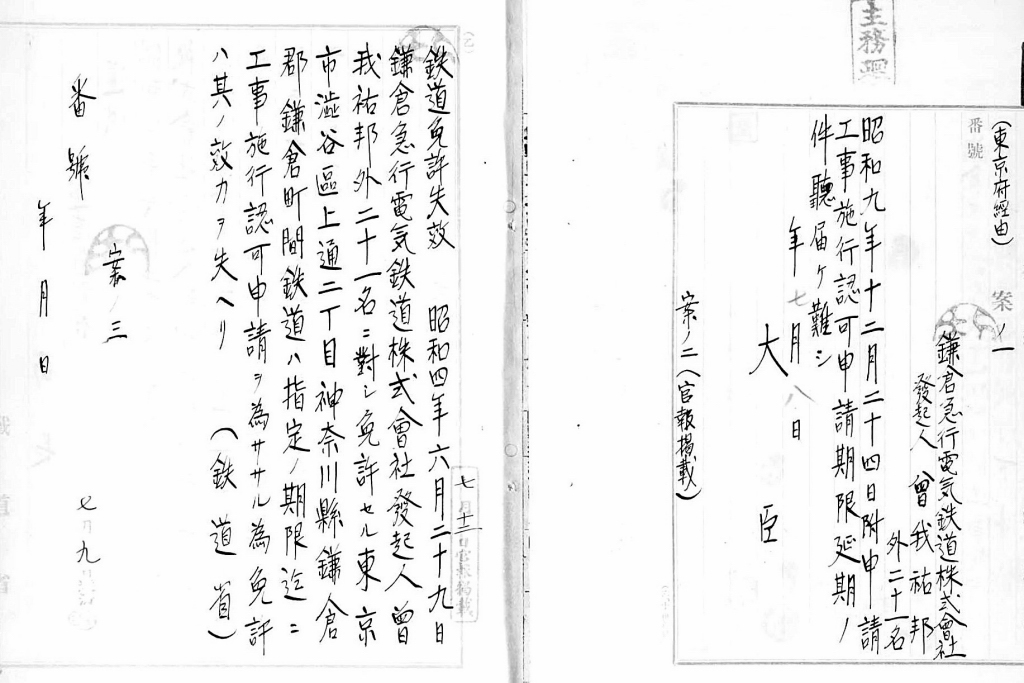 主務
(東京府經由)
番號
案ノ一
鎌倉急行電気鉄道株式會社
發起人 曾我祐邦
外二十一名
昭和九年十二月二十四日附申請
工事施行認可申請期限延期ノ
件聽届ケ難シ
年七月八日
大臣
案ノ二(官報掲載)
七月十三日官報掲載
鉄道免許失效 昭和四年六月二十九日
鎌倉急行電気鉄道株式會社發起人曾
我祐邦外二十一名ニ對シ免許セル東京
市澁谷區上通二丁目神奈川縣鎌倉
郡鎌倉町間鉄道ハ指定ノ期限迄ニ
工事施行認可申請ヲ為ササル為免許
ハ其ノ效力ヲ失ヘリ (鉄道省)
案ノ三
番號
年月日
七月九